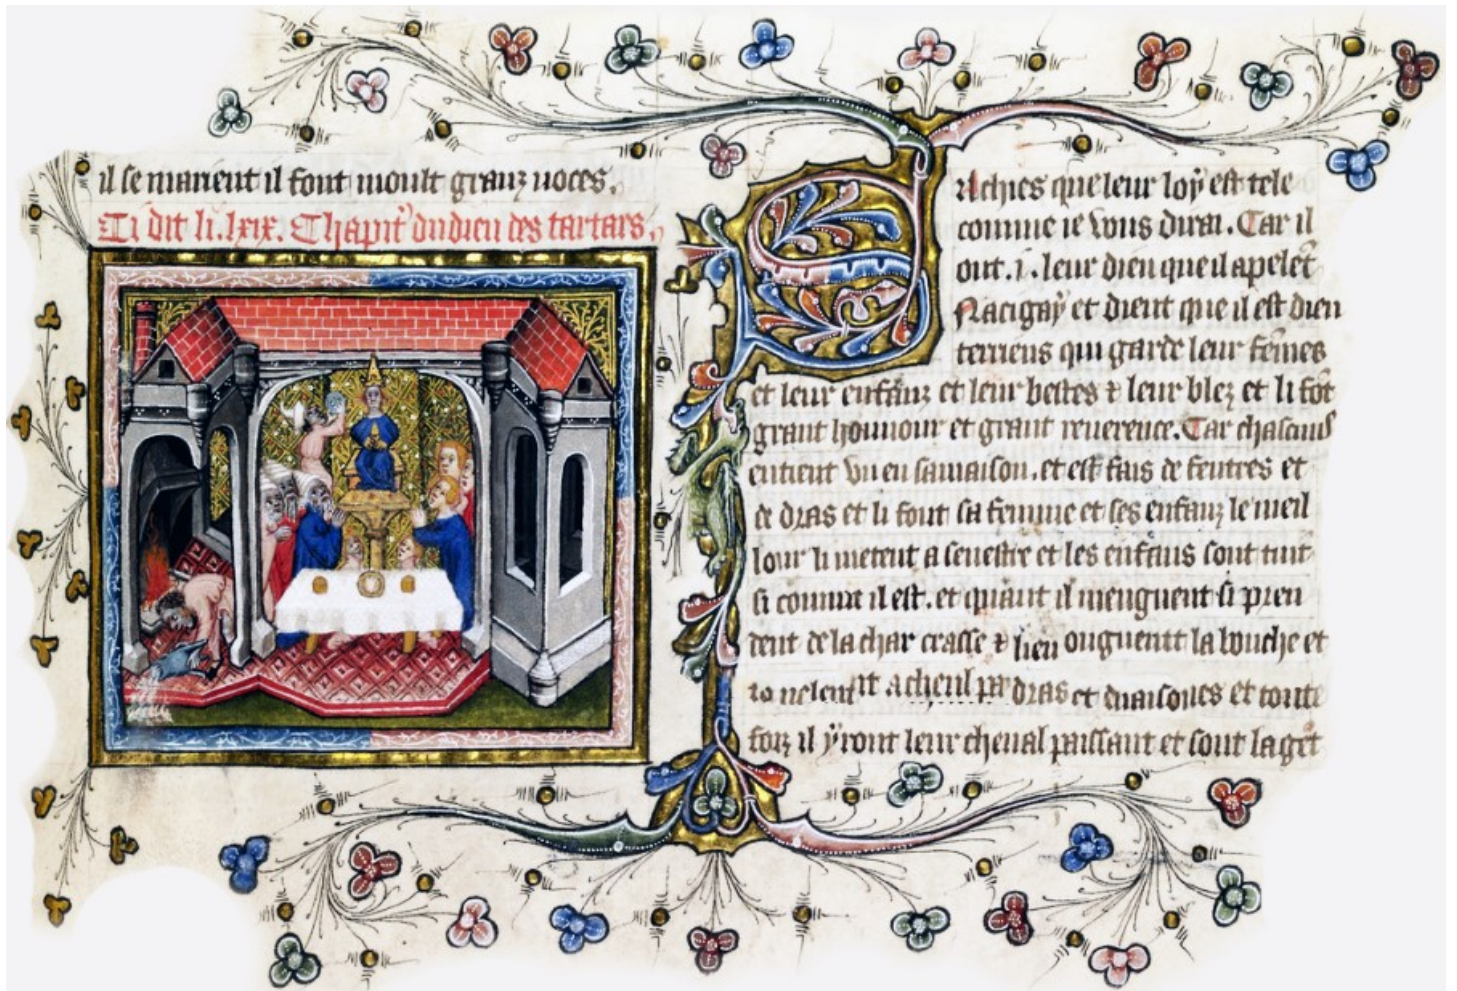 il se marient il font moult granz noces.
Ci dit li .lxix. Chapitr̃ du dieu des tartars.
Sachies que leur loy est tele
comme ie vous dirai. Car il
ont .i. leur dieu que il apelẽt
Nacigay et dient que il est dieu
terriens qui garde leur fẽmes
et leur enfanz et leur bestes ⁊ leur blez et li fõt
grant honnour et grant reuerence. Car chascuns
entient vn en sa maison. et est fais de feutres et
de dras et li font sa femme et ses enfanz le meil
lour li metent a senestre et les enfans sont tuit
si comme il est. et quant il menguent si pren
dent de la char crasse ⁊ lieu ougnent la bouche et
dras et et toute
foiz il yront leur cheual paissant et sont la gẽt